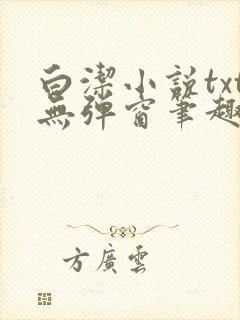 白潔小説txt
無彈窗筆趣
方廣雲